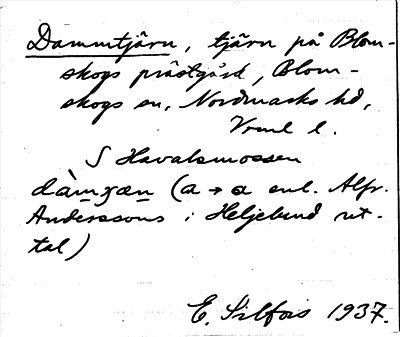 Dammtjärn, tjärn på Blom-
skogs prästgård, Blom-
skogs sn, Nordmarks hd,
Vrml l.
S Havalsmossen
dàm̲ʒæn̲ (a → ɑ enl. Alfr.
Anderssons i Heljebund ut-
tal)
E. Silfors 1937.